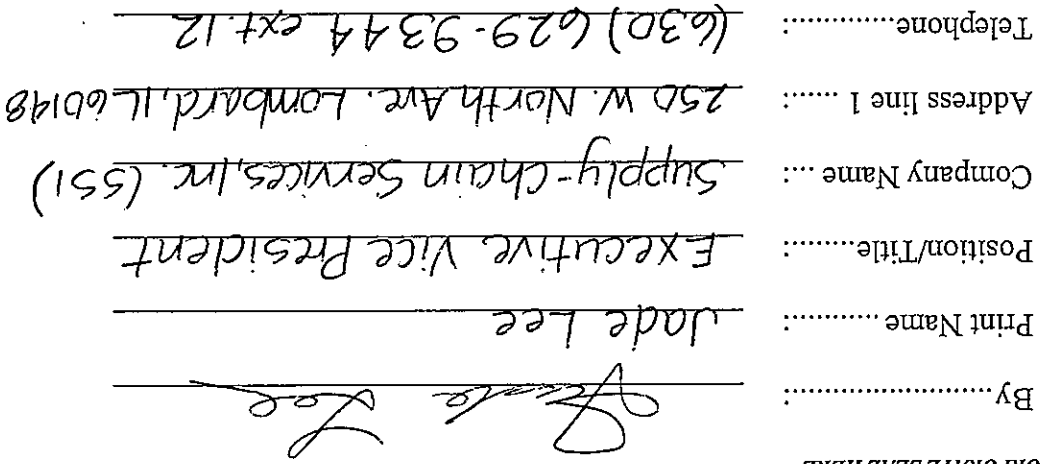 By........................: Lee
Print Name ............: Jade Lee
Position/Title.........: Executive Vice President
Company Name ...: Supply-Chain Services, Inc. (SSI)
Address line 1 ......: 250 W. North Ave. Lombard, IL 60148
Telephone..............: (630) 629-9344 ext.12